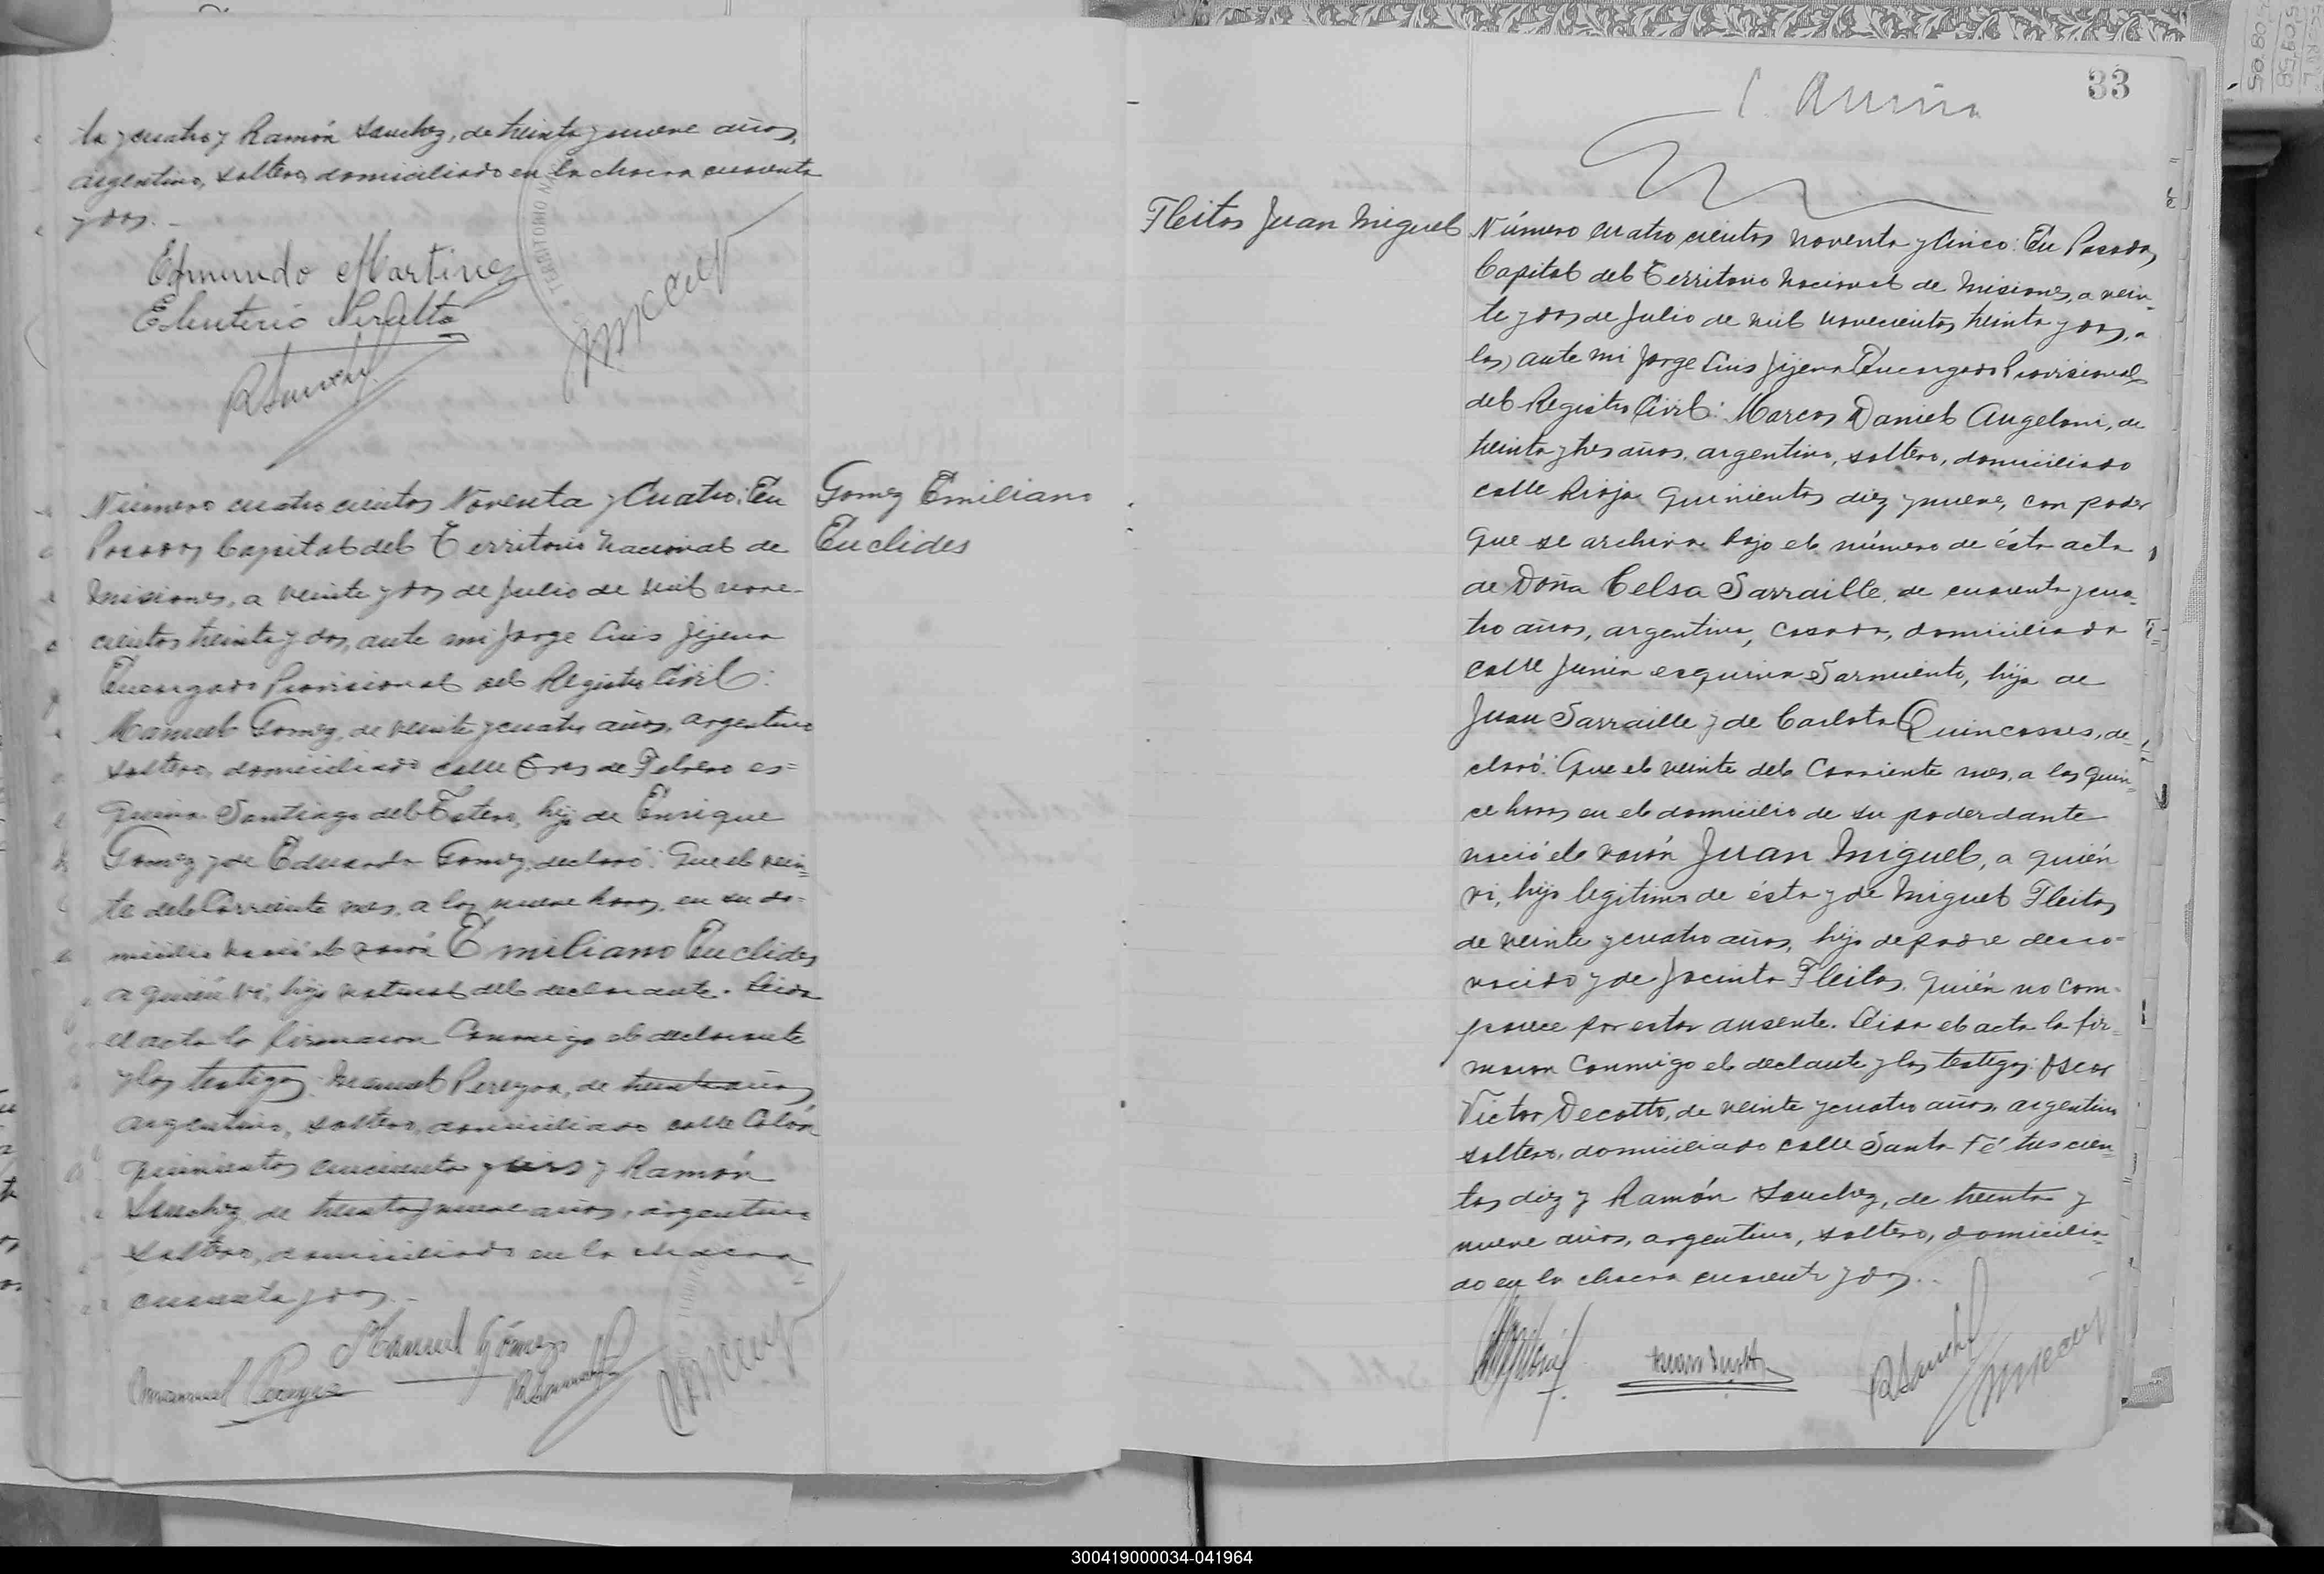 ta y cuatro y Ramón Sanchez, de treinta y nueve años,
argentino, soltero, domiciliado en la chacra cuarenta
y dos.-
Edmundo Martinez
Eleuterio Peralta
RSanchez
Número cuatrocientos Noventa y Cuatro: En
Posadas Capital del Territorio Nacional de
Misiones, a veinte y dos de Julio de mil nove-
cientos treinta y dos, ante mi Jorge Luis Jijena
Encargado Provisional del Registro Civil:
Manuel Gomez, de veinte y cuatro años, argentino
soltero, domiciliado calle Tres de Febrero es=
quina Santiago del Estero, hijo de Enrique
Gomez y de Eduarda Gomez, declaró: Que el vein=
te del Corriente mes, a las nueve horas, en su do=
micilio nació el varón Emiliano Euclides
a quién vi, hijo natural del declarante. Leida
el acta la firmaron Conmigo el declarante
y los testigos: Manuel Pereyra, de treinta años
argentino, soltero, domiciliado calle Colón
quinientos cincuenta y tres y Ramón
Sanchez, de treinta y nueve años, argentino
soltero, domiciliado en la chacra
cuarenta y dos.-
Manuel Gómez
Manuel Pereyra
RSanchez
Gomez Emiliano
Euclides
33
Fleitas Juan Miguel
Número cuatrocientos noventa y Cinco: En Posadas
Capital del Territorio Nacional de Misiones, a vein-
te y dos de Julio de mil novecientos treinta y dos, a
las) ante mi Jorge Luis Jijena Encargado Provisional
del Registro Civil: Marcos Daniel Angeloni, de
treinta y tres años, argentino, soltero, domiciliado
calle Rioja quinientos diez y nueve, con poder
que se archiva bajo el número de ésta acta
de Doña Celsa Sarraille, de cuarenta y cua-
tro años, argentina, casada, domiciliada
calle Junin esquina Sarmiento, hija de
Juan Sarraille y de Carlota Quincosses, de-
claró: Que el veinte del Corriente mes, a las quin=
ce horas en el domicilio de su poderdante
nació el varón Juan Miguel, a quién
vi, hijo legitimo de ésta y de Miguel Fleitas
de veinte y cuatro años, hijo de padre desco=
nocido y de Jacinta Fleitas, quién no com-
parece por estar ausente. Leida el acta la fir=
maron Conmigo el declante y los testigos: Oscar
Victor Decotto, de veinte y cuatro años, argentino
soltero, domiciliado calle Santa Fé trescien=
tos diez y Ramón Sanchez, de treinta y
nueve años, argentino, soltero, domicilia=
do en la chacra cuarenta y dos.-
RSanchez
300419000034-041964